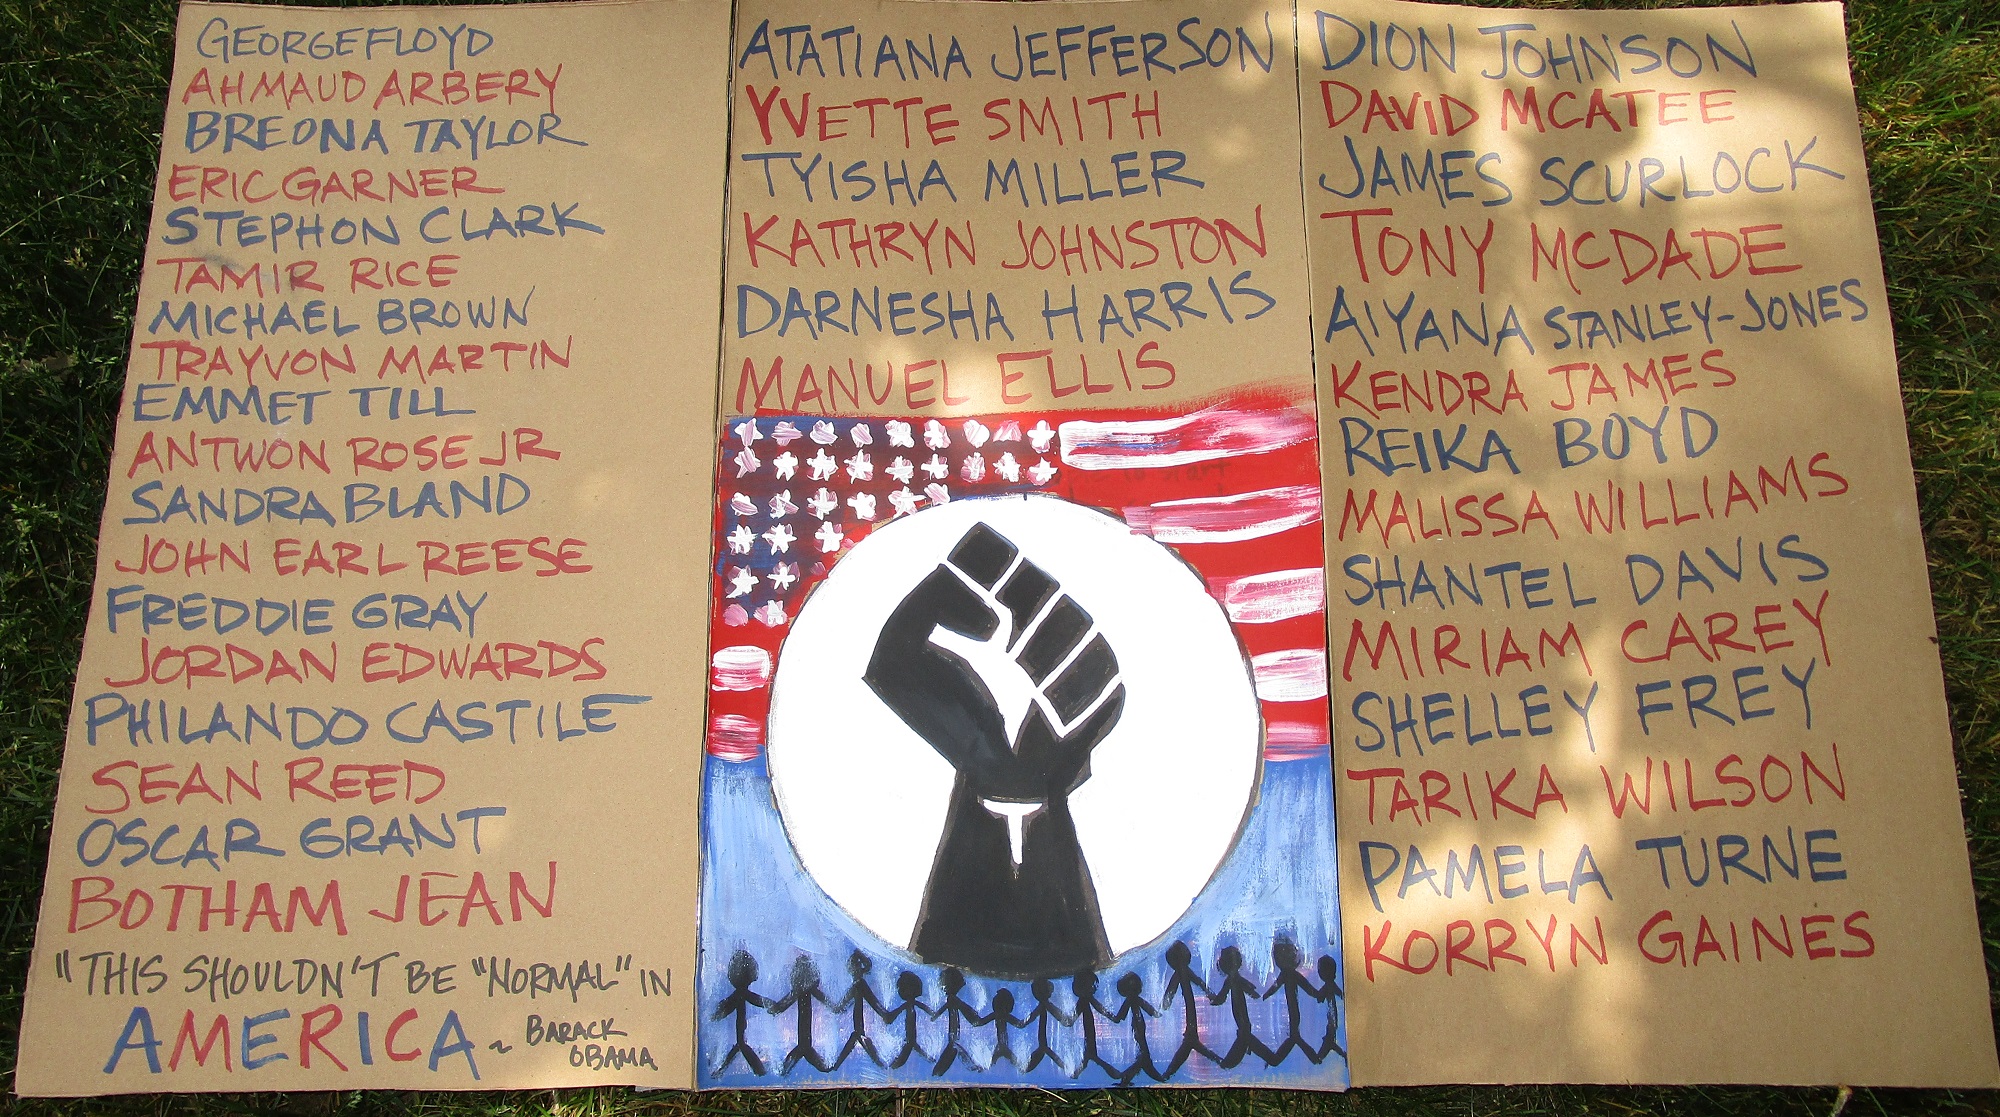 GEORGE FLOYD
AHMAUD ARBERY
BREONA TAYLOR
ERIC GARNER
STEPHON CLARK
TAMIR RICE
MICHAEL BROWN
TRAYVON MARTIN
EMMET TILL
ANTWON ROSE JR
SANDRA BLAND
JOHN EARL REESE
FREDDIE GRAY
JORDAN EDWARDS
PHILANDO CASTILE
SEAN REED
OSCAR GRANT
BOTHAM JEAN
"THIS SHOULDN'T BE "NORMAL" IN
AMERICA ~ BARACK
OBAMA
ATATIANA JEFFERSON
YVETTE SMITH
TYISHA MILLER
KATHRYN JOHNSTON
DARNESHA HARRIS
MANUEL ELLIS
DION JOHNSON
DAVID MCATEE
JAMES SCURLOCK
TONY MCDADE
AIYANA STANLEY-JONES
KENDRA JAMES
REIKA BOYD
MALISSA WILLIAMS
SHANTEL DAVIS
MIRIAM CAREY
SHELLEY FREY
TARIKA WILSON
PAMELA TURNE
KORRYN GAINES